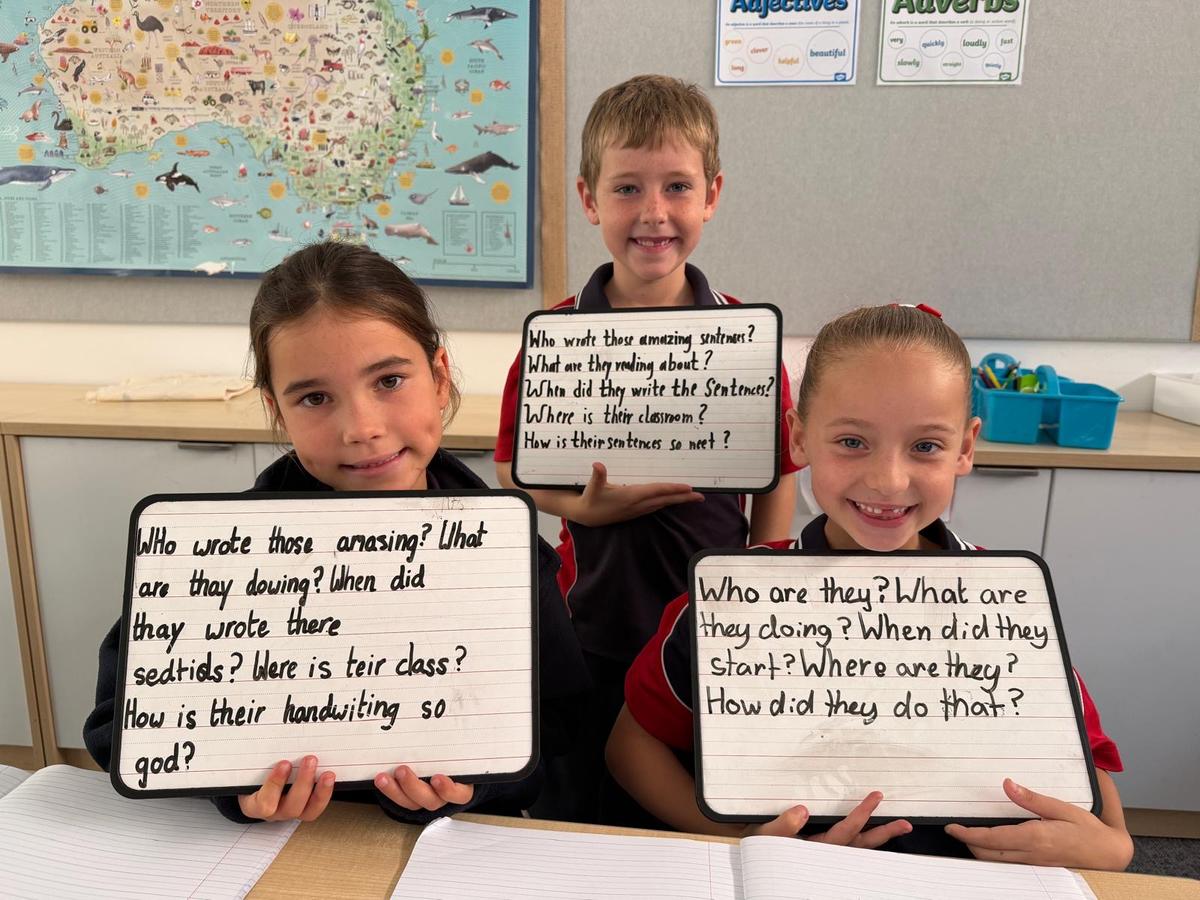 NORTHERN TERRITORY
WESTERN AUSTRALIA
Adjectives
green
clever
beautiful
long
helpful
Adverbs
An adverb is a word that describes a verb (a doing or action word).
very
quickly
loudly
fast
slowly
straight
Who wrote those amazing sentenses?
What are they reading about?
When did they write the Sentences?
Where is their classroom?
How is their sentences so neet?
WHo wrote those amasing? What
are thay dowing? When did
thay wrote there
sedtids? Were is teir class?
How is their handwiting so
god?
Who are they? What are
they doing? When did they
start? Where are they?
How did they do that?